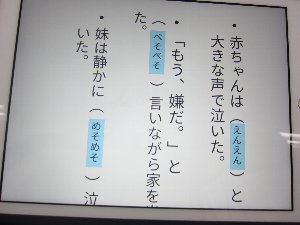 ・赤ちゃんは（えんえん）と
大きな声で泣いた。
・「もう、嫌だ。」と
（べそべそ）言いながら家を
た。
・妹は静かに（めそめそ）泣
いた。